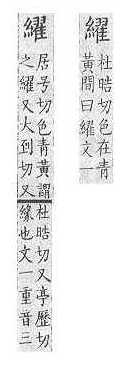 䌦
杜晧切色在青
黃間曰䌦文一
䌦
居号切色青黃謂
之䌦又大到切又
杜晧切又亭歷切
緣也文一重音三